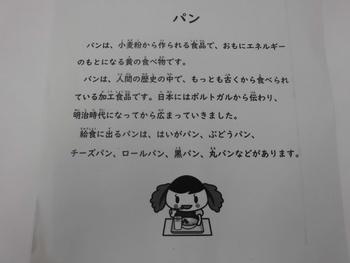 パン
パンは、小麦粉から作られる食品で、おもにエネルギー
のもとになる黄の食べ物です。
パンは、人間の歴史の中で、もっとも古くから食べられ
ている加工食品です。日本にはポルトガルから伝わり、
明治時代になってから広まっていきました。
給食に出るパンは、はいがパン、ぶどうパン、
チーズパン、ロールパン、黒パン、丸パンなどがあります。